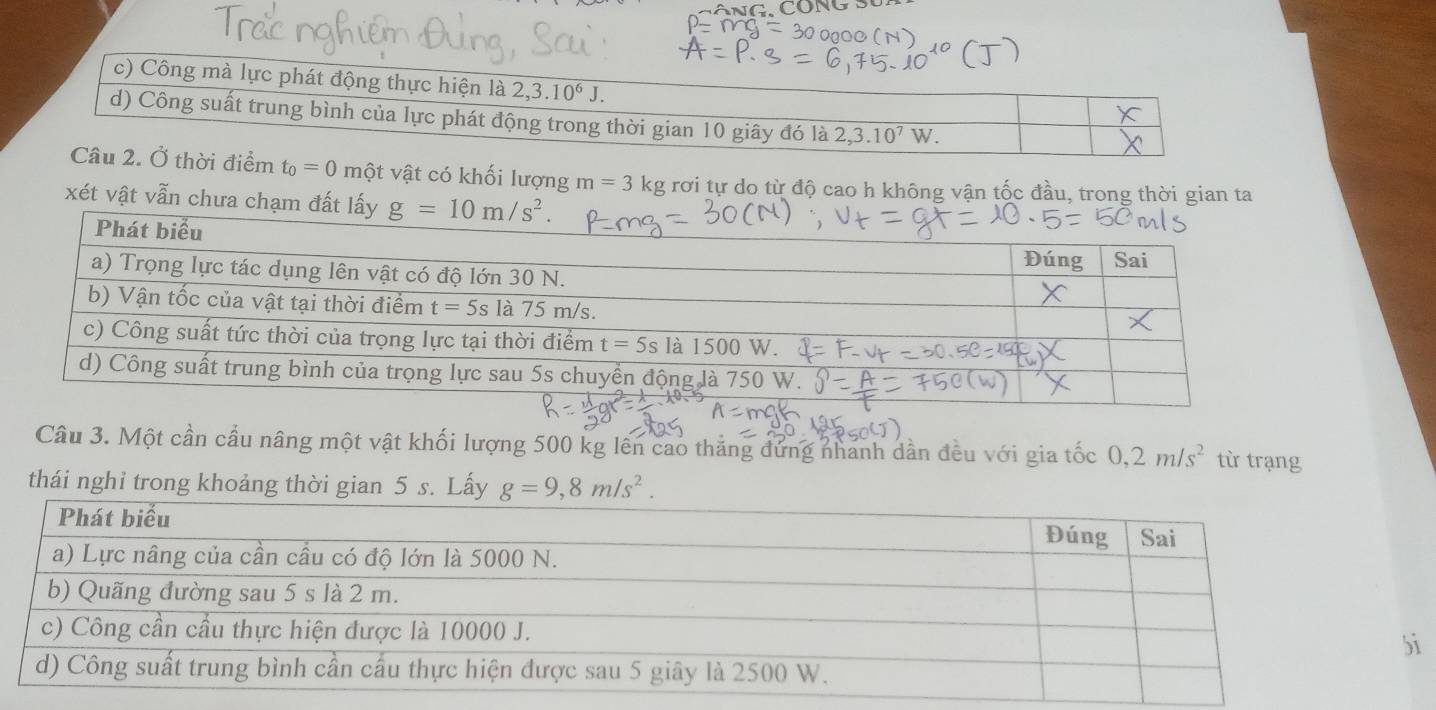 ÂNG. CÔNG SU
Trắc nghiệm Đúng, Sai:
P = mg = 300000 (N)
A = P.s = 6,75.10¹⁰ (J)
c) Công mà lực phát động thực hiện là 2,3.10⁶ J. X
d) Công suất trung bình của lực phát động trong thời gian 10 giây đó là 2,3.10⁷ W. X
Câu 2. Ở thời điểm t₀ = 0 một vật có khối lượng m = 3 kg rơi tự do từ độ cao h không vận tốc đầu, trong thời gian ta
xét vật vẫn chưa chạm đất lấy g = 10 m/s². P=mg = 30(N) ; Vt = gt = 10.5 = 50 m/s
Phát biểu Đúng Sai
a) Trọng lực tác dụng lên vật có độ lớn 30 N. X
b) Vận tốc của vật tại thời điểm t = 5s là 75 m/s. X
c) Công suất tức thời của trọng lực tại thời điểm t = 5s là 1500 W. = F.Vt = 30.50 = X
d) Công suất trung bình của trọng lực sau 5s chuyển động là 750 W. P = A/t = 750(W) X
h = 1/2 gt² = A = mgh
Câu 3. Một cần cẩu nâng một vật khối lượng 500 kg lên cao thẳng đứng nhanh dần đều với gia tốc 0,2 m/s² từ trạng
thái nghỉ trong khoảng thời gian 5 s. Lấy g = 9,8 m/s².
Phát biểu Đúng Sai
a) Lực nâng của cần cẩu có độ lớn là 5000 N.
b) Quãng đường sau 5 s là 2 m.
c) Công cần cẩu thực hiện được là 10000 J.
d) Công suất trung bình cần cẩu thực hiện được sau 5 giây là 2500 W.